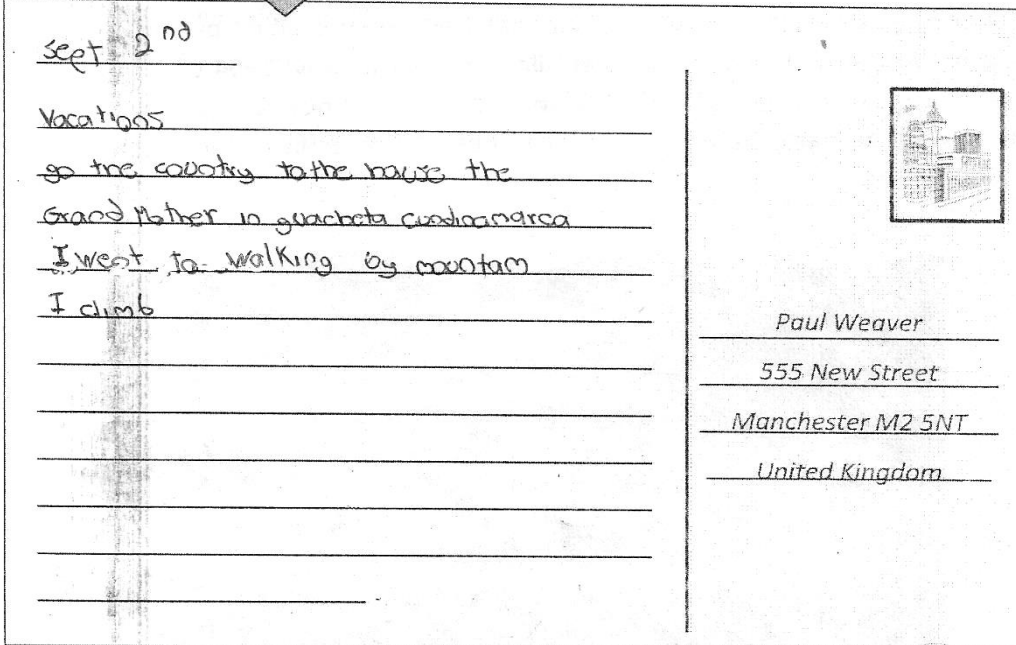 sept 2nd
Vacations
go the country to the house the
Grand Mother in guacheta cundinamarca
I went to walking by mountam
I climb
Paul Weaver
555 New Street
Manchester M2 5NT
United Kingdom